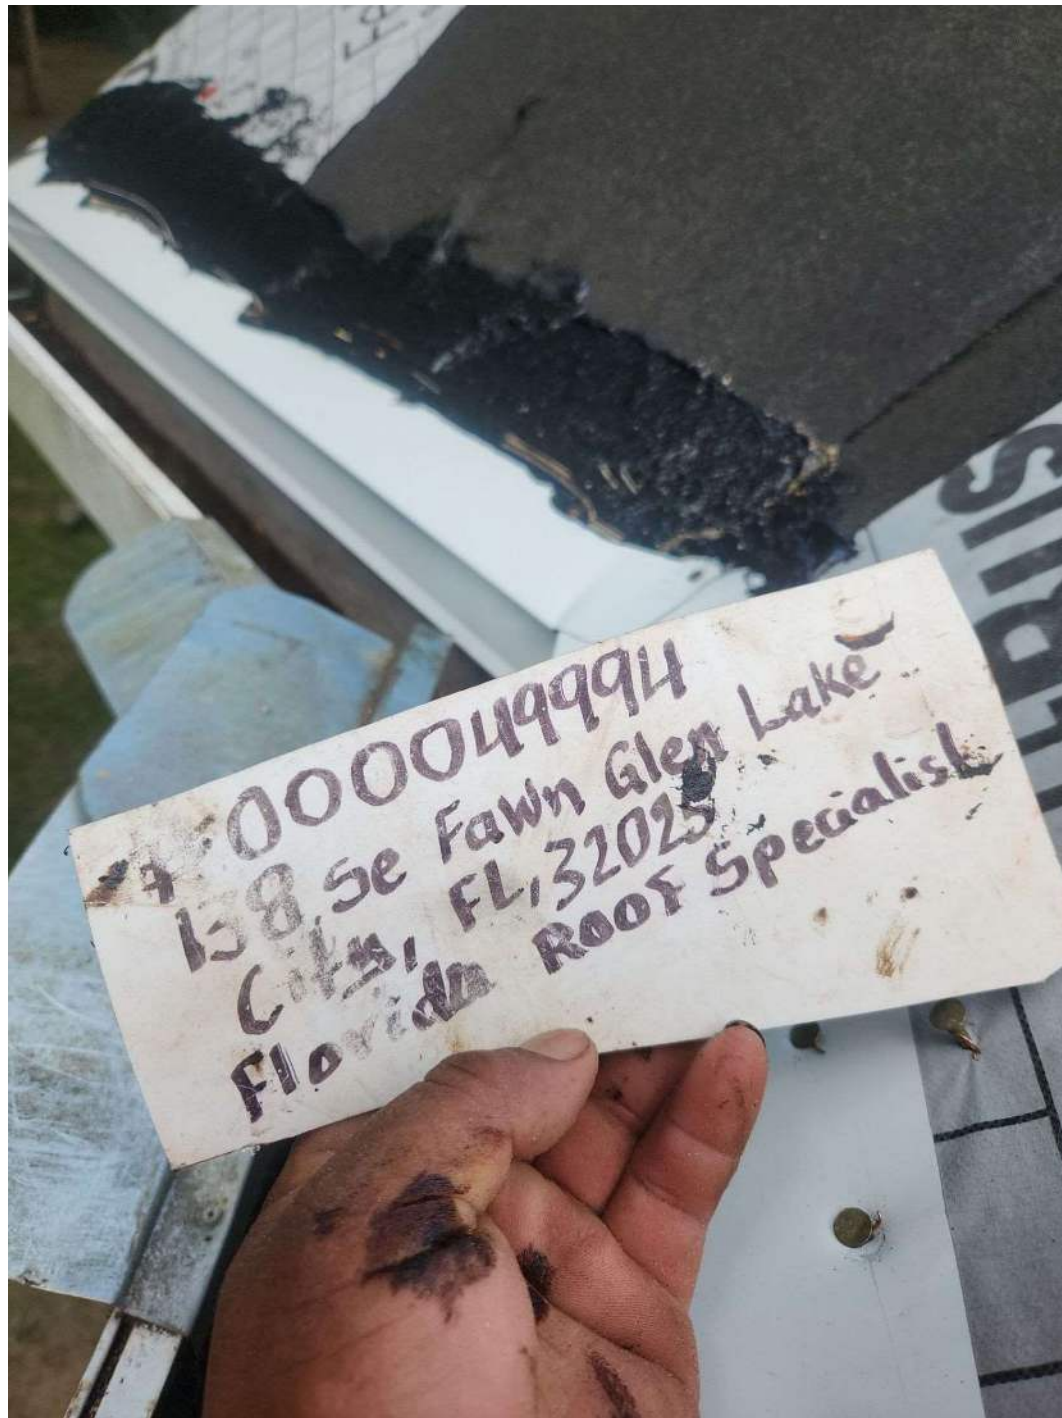 000049994
138, Se Fawn Glen Lake
City, FL, 32025
Florida Roof Specialist